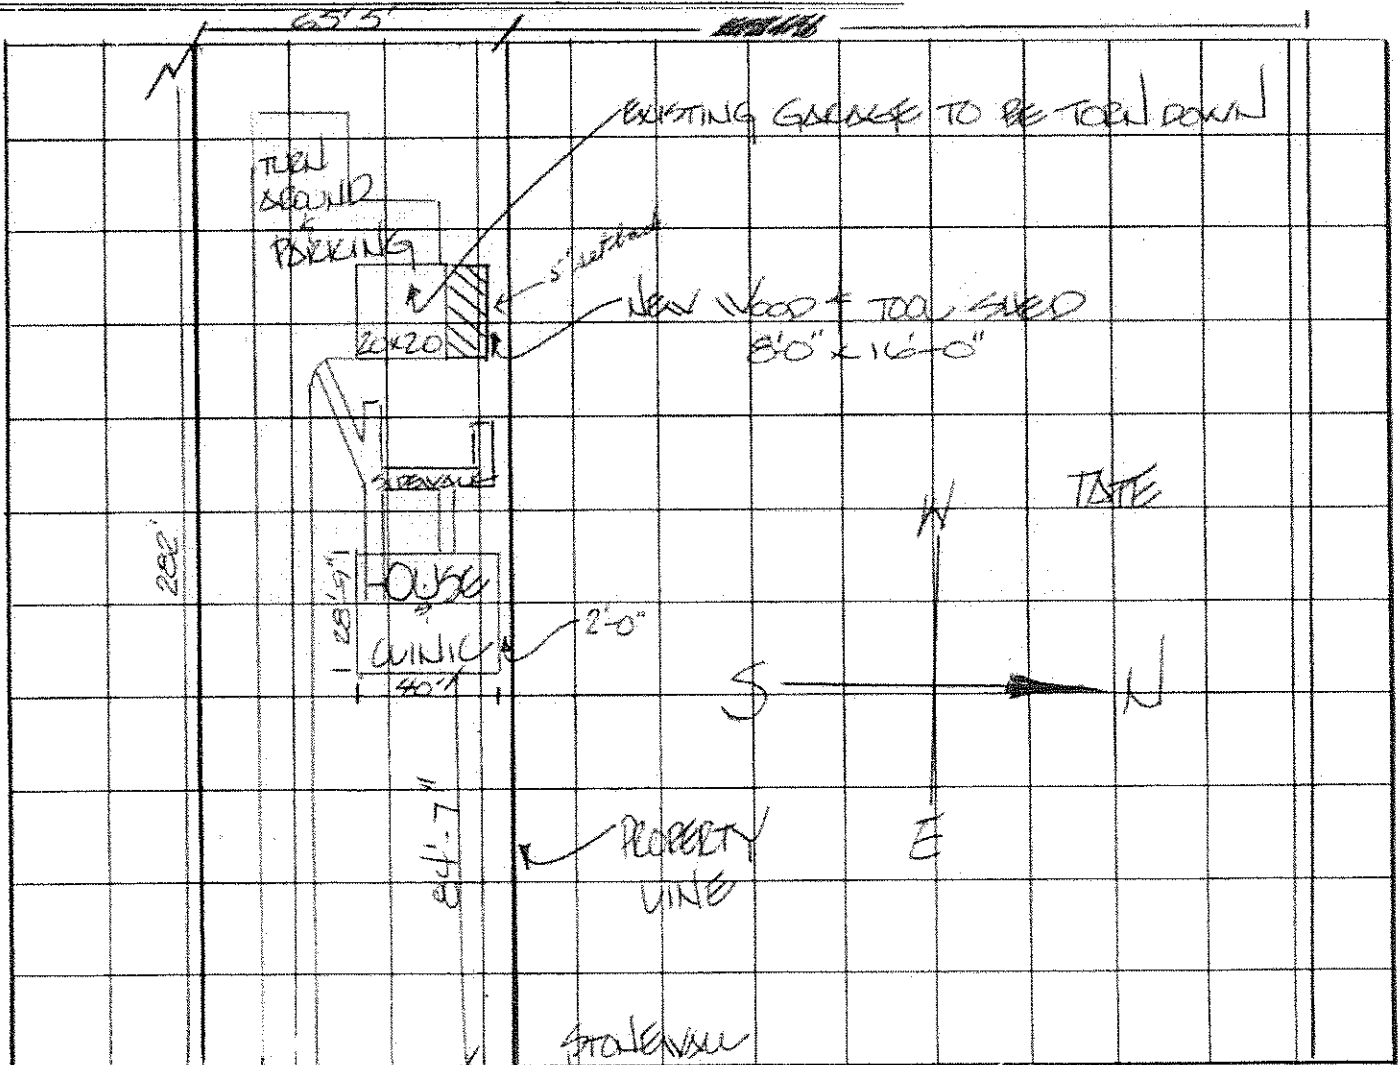 65'5"
EXISTING GARAGE TO BE TORN DOWN
TURN
AROUND
&
PARKING
5' setback
NEW WOOD & TOOL SHED
8'0" x 16'-0"
20x20
SIDEWALK
TATE
W
282'
HOUSE
&
CLINIC
28'-9"
2'-0"
40'
S
N
E
84'-7"
PROPERTY
LINE
STONEWALL